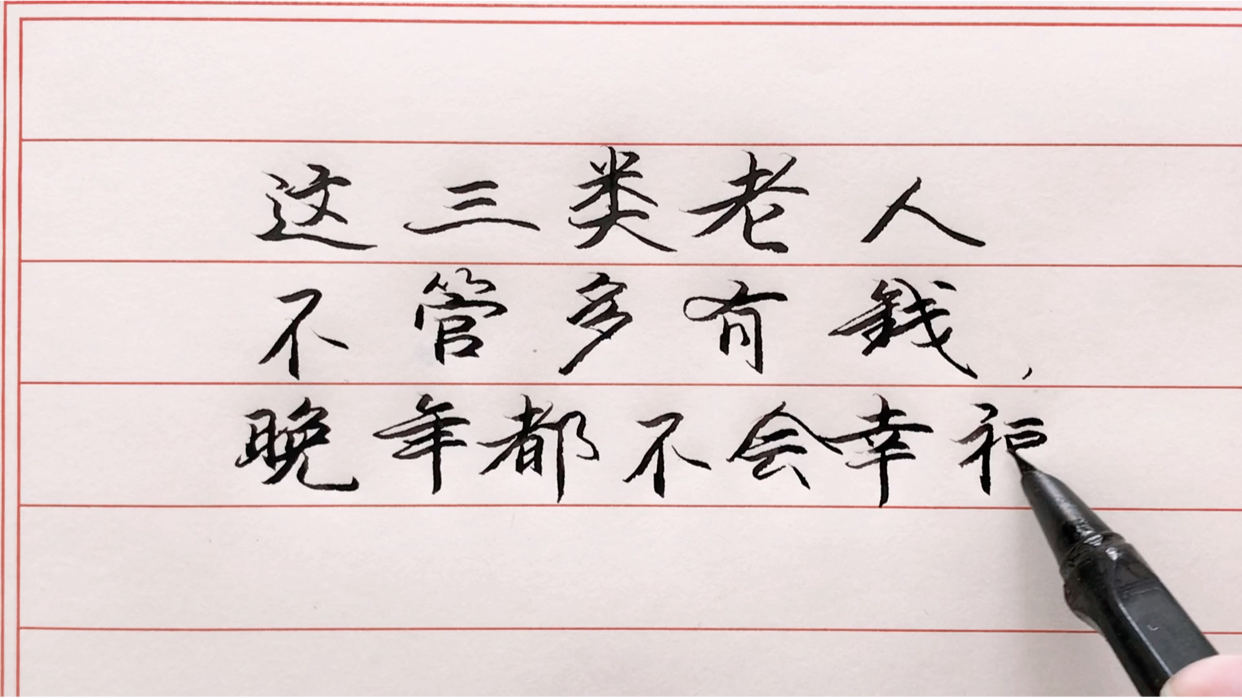 这三类老人
不管多有钱,
晚年都不会幸福